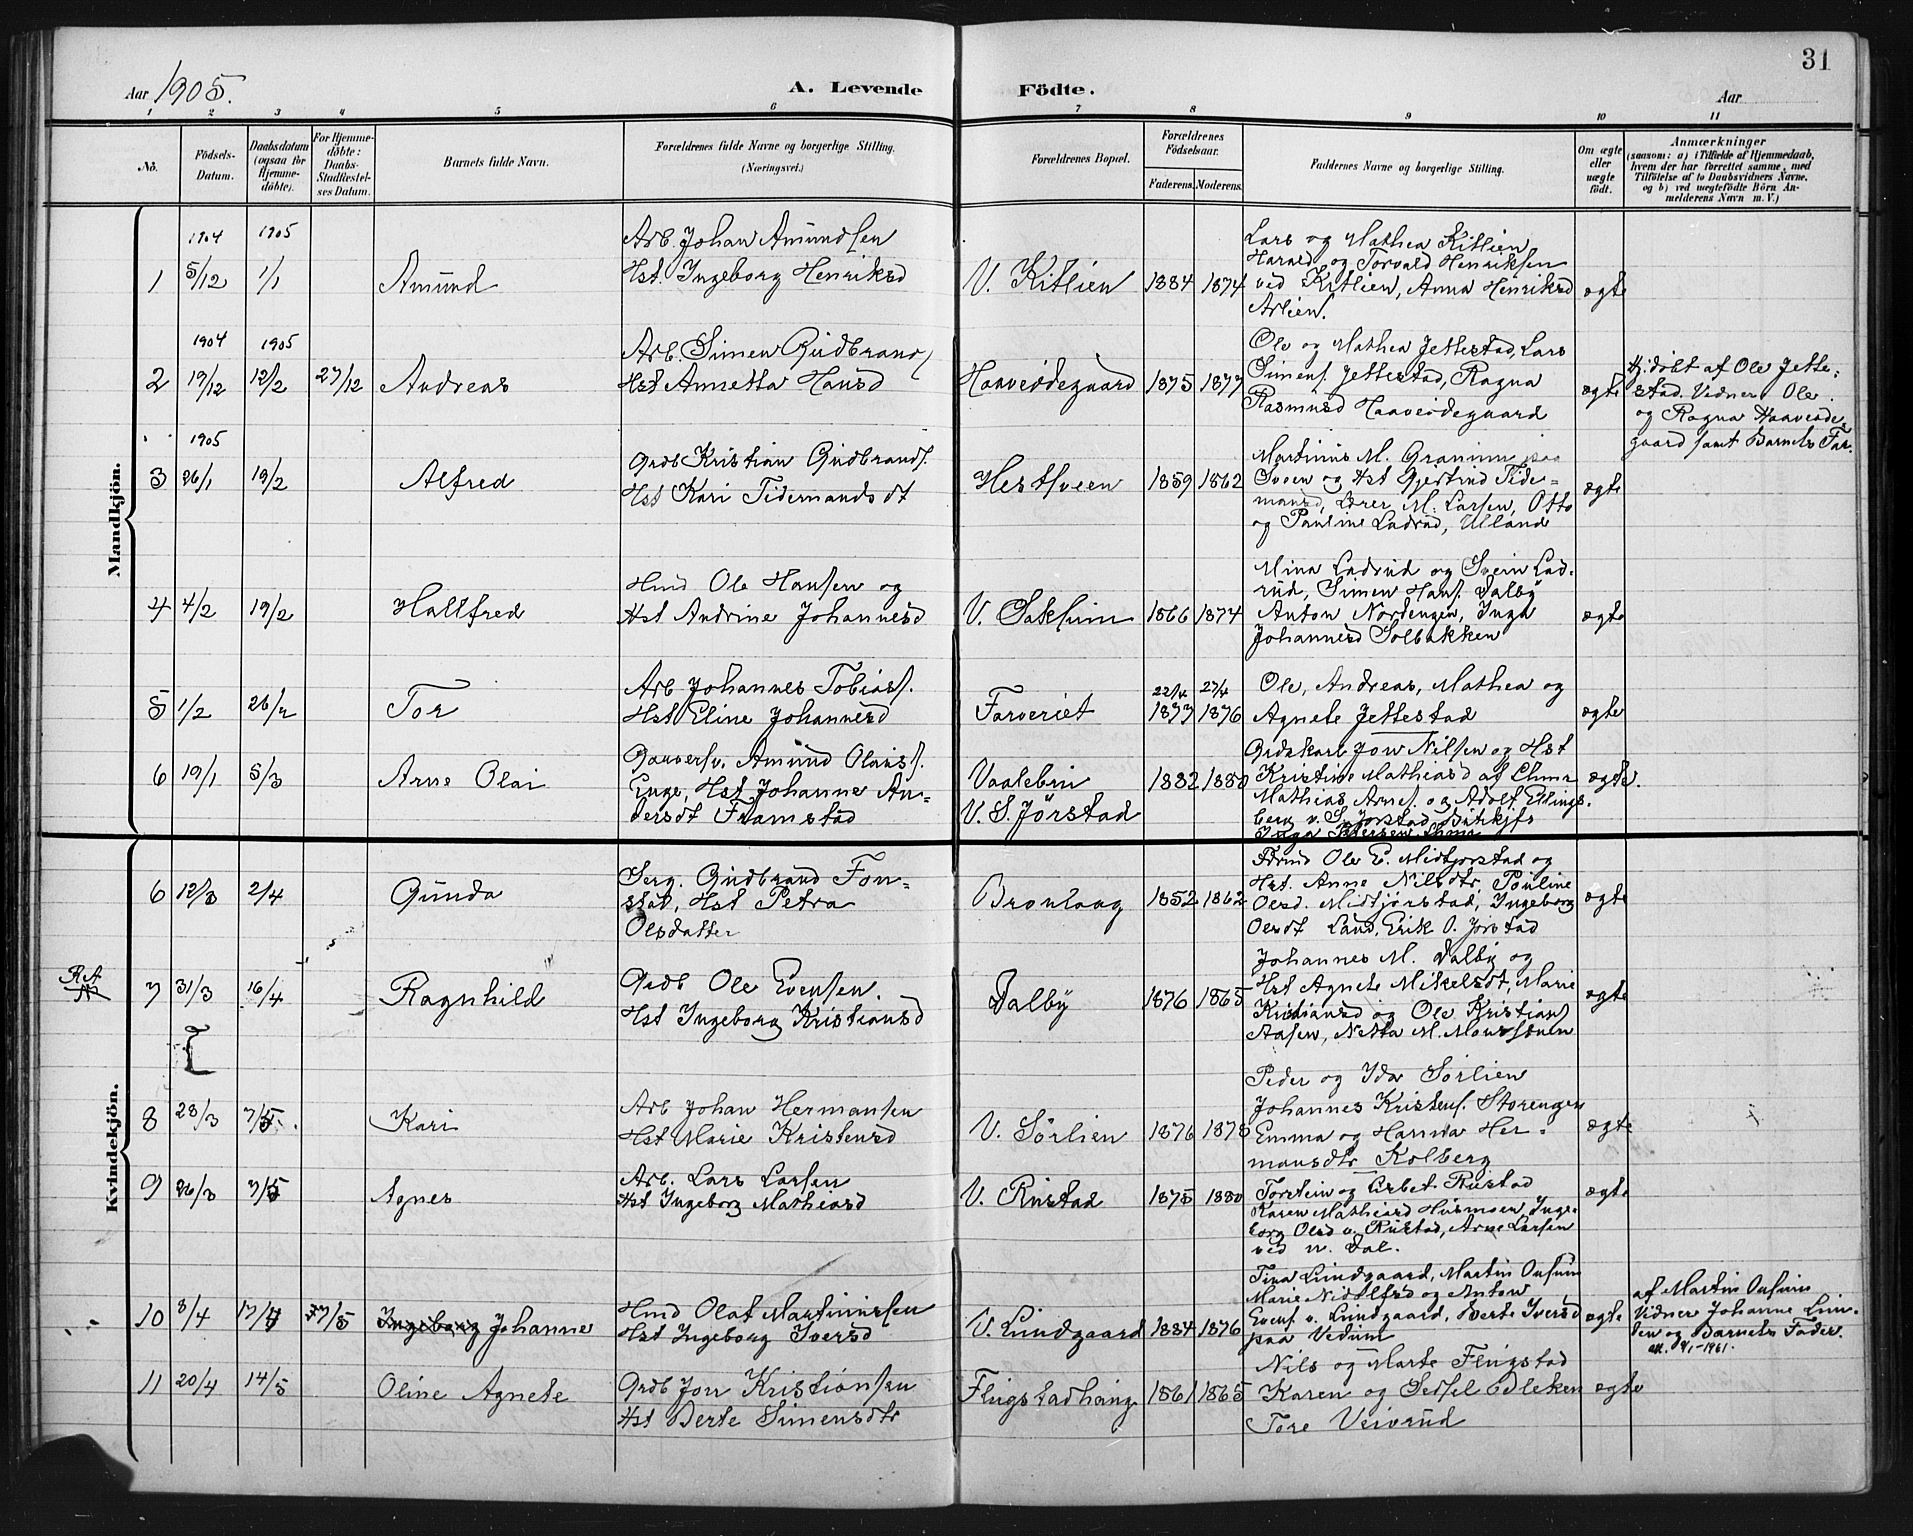 31
Aar 1905.
A. Levende Födte.
Aar
1 2 3 4 5 6 7 8 9 10 11
No.
Födsels-Datum.
Daabsdatum (ogsaa for Hjemmedöbte).
For Hjemmedöbte: Daabs-Stadfestelses Datum.
Barnets fulde Navn.
Forældrenes fulde Navne og borgerlige Stilling.
(Næringsvei.)
Forældrenes Bopæl.
Forældrenes Födselsaar.
Faderens. Moderens.
Faddernes Navne og borgerlige Stilling.
Om ægte eller uægte födt.
Anmærkninger
(saasom: a) i Tilfælde af Hjemmedaab,
hvem der har forrettet samme, med
Tilföielse af to Daabsvidners Navne,
og b) ved uægtefödte Börn Anmelderens Navn m. V.)
Mandkjön.
1904 1905
1 5/12 1/1 Amund
Arb. Johan Amundsen
Hst. Ingeborg Henriksd
V. Kitlien 1884 1874
Lars og Mathea Kitlien
Harald og Torvald Henriksen
ved Kitlien, Anna Henriksd
Arlien.
ægte
1904 1905
2 19/12 12/2 27/12 Andreas
Arb. Simen Gudbrands
Hst Annetta Hansd
Haaveødegaard 1875 1877
Ole og Mathea Jettestad, Lars
Simens. Jettestad, Ragna
Rasmusd Haaveødegaard
ægte
Hj. døbt af Ole Jette-
stad. Vidner Ole
og Ragna Haaveøde
gaard samt Barnets Far.
1905
3 26/1 19/2 Alfred
Grdb Kristian Gudbrands.
Hst Kari Tidemandsdt
Hestsveen 1859 1862
Martinus M. Granum paa
Sveen og Hst Gjertrud Tide-
mansd, Lærer M. Larsen, Otto
og Pauline Ladrud, Ulland
ægte
4 4/2 19/2 Hallfred
Hmd Ole Hansen og
Hst Andrine Johannesd
V. Saksum 1866 1874
Mina Ladrud og Svein Lad-
rud, Simen Hans. Dalby
Anton Nordengen, Inga
Johannesd Solbakken
ægte
5 1/2 26/2 Tor
Arb Johannes Tobias.
Hst Eline Johannesd
Farveriet 22/4 1877 27/4 1876
Ole, Andreas, Mathea og
Agnete Jettestad
ægte
6 19/1 5/3 Arne Olai
Garversv. Amund Olaus.
Enge, Hst Johanne An-
dersdt Framstad
Vaalebru
V. S. Jørstad 1882 1880
Grdskarl Jon Nilsen og Hst
Kristine Mathiasd af Chmr
Mathias Arnes. og Adolf Ellings-
berg v. S. Jørstad
Inga Pedersen Chmr
ægte.
Kvindekjön.
6 12/3 2/4 Gunda
Serg. Gudbrand Fon-
stad, Hst Petra
Olsdatter
Bronlaag 1852 1862
Ole E. Midtjørstad og
Hst. Anne Nilsdtr, Pauline
Olesd. Midtjørstad, Ingeborg
Olesdt Land, Erik O. Jørstad
ægte
RA
7 31/3 16/4 Ragnhild
Grdb Ole Evensen
Hst Ingeborg Kristiansd
Dalby 1876 1865
Johannes M. Dalby og
Hst Agnete Mikelsdt, Marie
Kristiansd og Ole Kristians
Aasen, Netta M.
ægte
8 28/3 7/5 Kari
Arb Johan Hermansen
Hst Marie Kristensd
V. Sørlien 1876 1875
Peder og Ida Sørlien
Johannes Kristens. Storengen
Emma og Hanna Her-
mansdtr Kolberg
ægte
9 26/3 7/5 Agnes
Arb. Lars Larsen
Hst Ingeborg Mathiasd
V. Rustad 1875 1880
Torstein og Lisbet Rustad
Karen Mathiasd Husmoen, Inge-
borg Olesd v. Rustad, Arne Larsen
ved n. Dal.
ægte
10 8/4 17/4 27/5 Ingeborg Johanne
Hmd Olaf Martiniusen
Hst Ingeborg Iversd
V. Lundgaard 1884 1876
Tina Lundgaard, Martin Ousum
Marie og Anton
Evens. v. Lundgaard, Berte Iversd
paa Vedum
ægte
af Martin Ousum
Vidner Johanne Lun-
den og Barnets Fader.
1961.
11 20/4 14/5 Oline Agnete
Grdb Jon Kristiansen
Hst Berte Simensdtr
Flugstadhaug 1861 1865
Nils og Marte Flugstad
Karen og Sedsel Odleken
Tore Veivrud
ægte